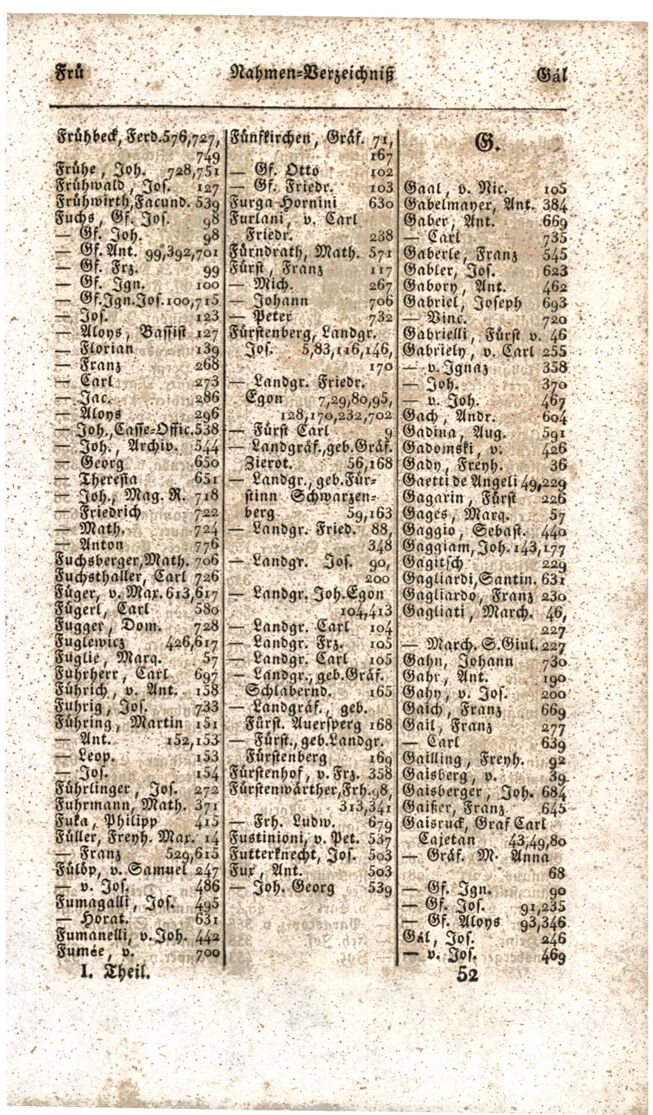 Frü
Nahmen-Verzeichniß
Gál
Frühbeck, Ferd. 576,727,
749
Frühe, Joh. 728,751
Frühwald, Jos. 127
Frühwirth, Facund. 539
Fuchs, Gf. Jos. 98
— Gf. Joh. 98
— Gf. Ant. 99,392,701
— Gf. Frz. 99
— Gf. Ign. 100
— Gf. Ign. Jos. 100,715
— Jos. 123
— Aloys, Bassist 127
— Florian 139
— Franz 268
— Carl 273
— Jac. 286
— Aloys 296
— Joh., Casse-Offic. 538
— Joh., Archiv. 544
— Georg 650
— Theresia 651
— Joh., Mag. R. 718
— Friedrich 722
— Math. 724
— Anton 776
Fuchsberger, Math. 706
Fuchsthaller, Carl 726
Füger, v. Max. 613,617
Fügerl, Carl 580
Fugger, Dom. 728
Fuglewicz 426,617
Fuglie, Marq. 57
Führherr, Carl 697
Führich, v. Ant. 158
Fuhrig, Jos. 733
Führing, Martin 151
— Ant. 152,153
— Leop. 153
— Jos. 154
Führlinger, Jos. 272
Fuhrmann, Math. 371
Fuka, Philipp 415
Füller, Freyh. Max. 14
— Franz 529,615
Fülöp, v. Samuel 247
— v. Jos. 486
Fumagalli, Jos. 495
— Horat. 631
Fumanelli, v. Joh. 442
Fumée, v. 700
I. Theil.
Fünfkirchen, Gräf. 71,
167
— Gf. Otto 102
— Gf. Friedr. 103
Furga Hornini 630
Furlani, v. Carl
Friedr. 238
Fürndrath, Math. 571
Fürst, Franz 117
— Mich. 267
— Johann 706
— Peter 732
Fürstenberg, Landgr.
Jos. 5,83,116,146,
170
— Landgr. Friedr.
Egon 7,29,80,95,
128,170,232,702
— Fürst Carl 9
— Landgräf., geb. Gräf.
Zierot. 56,168
— Landgr., geb. Für-
stinn Schwarzen-
berg 59,163
— Landgr. Fried. 88,
348
— Landgr. Jos. 90,
200
— Landgr. Joh. Egon
104,413
— Landgr. Carl 104
— Landgr. Frz. 105
— Landgr. Carl 105
— Landgr., geb. Gräf.
Schlabernd. 165
— Landgräf., geb.
Fürst. Auersperg 168
— Fürst., geb. Landgr.
Fürstenberg 169
Fürstenhof, v. Frz. 358
Fürstenwärther, Frh. 98,
313,341
— Frh. Ludw. 679
Fustinioni, v. Pet. 537
Futterknecht, Jos. 503
Fux, Ant. 503
— Joh. Georg 539
G.
Gaal, v. Nic. 105
Gabelmayer, Ant. 384
Gaber, Ant. 669
— Carl 735
Gaberle, Franz 545
Gabler, Jos. 623
Gabory, Ant. 462
Gabriel, Joseph 693
— Vinc. 720
Gabrielli, Fürst v. 46
Gabriely, v. Carl 255
— v. Ignaz 358
— Joh. 370
— v. Joh. 467
Gach, Andr. 604
Gadina, Aug. 591
Gadomski, v. 426
Gady, Freyh. 36
Gaetti de Angeli 49,229
Gagarin, Fürst 226
Gages, Marq. 57
Gaggio, Sebast. 440
Gaggiam, Joh. 143,177
Gagitsch 229
Gagliardi, Santin. 631
Gagliardo, Franz 230
Gagliati, March. 46,
227
— March. S. Giul. 227
Gahn, Johann 730
Gahr, Ant. 190
Gahy, v. Jos. 200
Gaich, Franz 669
Gail, Franz 277
— Carl 639
Gailling, Freyh. 92
Gaisberg, v. 39
Gaisberger, Joh. 684
Gaißer, Franz 645
Gaisruck, Graf Carl
Cajetan 43,49,80
— Gräf. M. Anna
68
— Gf. Ign. 90
— Gf. Jos. 91,235
— Gf. Aloys 93,346
Gál, Jos. 246
— v. Jos. 469
52